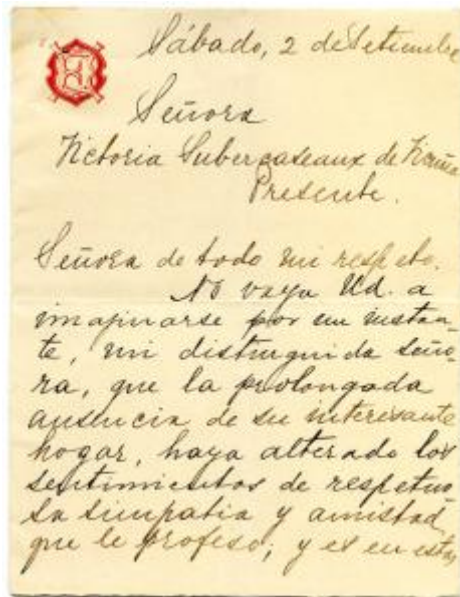 Sábado, 2 de Setiembre
Señora
Victoria Subercaseaux de Vicuña
Presente.
Señora de todo mi respeto.
No vaya Ud. a
imaginarse por un instan-
te, mi distinguida seño-
ra, que la prolongada
ausencia de su interesante
hogar, haya alterado los
sentimientos de respetuo
sa simpatia y amistad
que le profeso; y es en estas